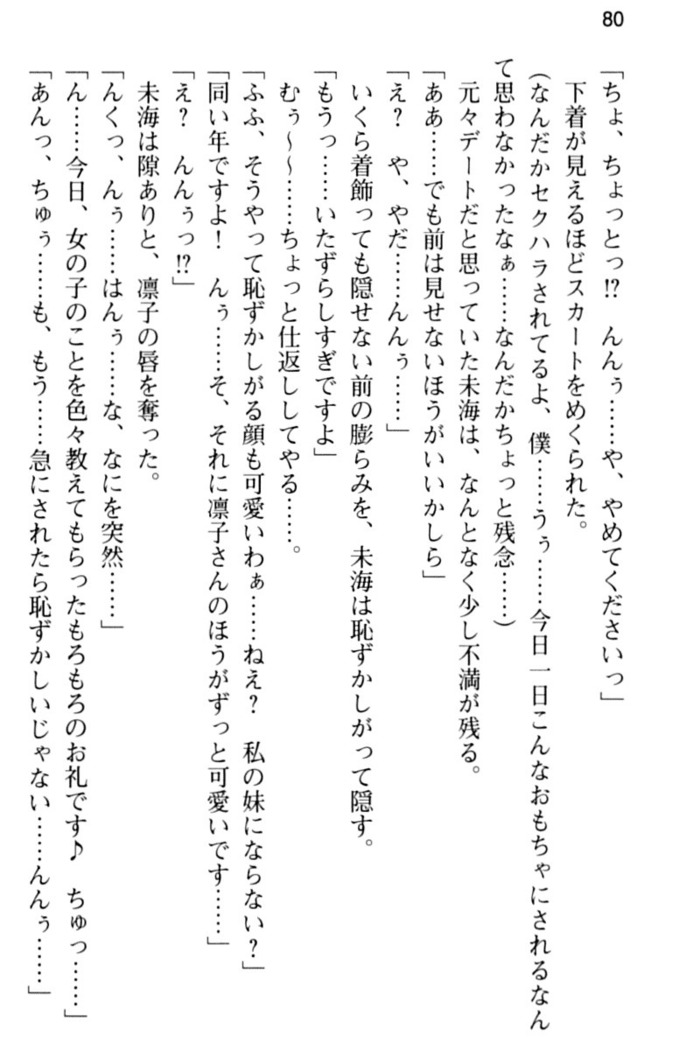 80
「ちょ、ちょっとっ!? んんぅ……や、やめてくださいっ」
下着が見えるほどスカートをめくられた。
(なんだかセクハラされてるよ、僕……うぅ……今日一日こんなおもちゃにされるなん
て思わなかったなぁ……なんだかちょっと残念……)
元々デートだと思っていた未海は、なんとなく少し不満が残る。
「ああ……でも前は見せないほうがいいかしら」
「え? や、やだ……んんぅ……」
いくら着飾っても隠せない前の膨らみを、未海は恥ずかしがって隠す。
「もうっ……いたずらしすぎですよ」
むぅ~~……ちょっと仕返ししてやる……。
「ふふ、そうやって恥ずかしがる顔も可愛いわぁ……ねえ? 私の妹にならない?」
「同い年ですよ! んぅ……そ、それに凛子さんのほうがずっと可愛いです……」
「え? んんぅっ!?」
未海は隙ありと、凛子の唇を奪った。
「んくっ、んぅ……はんぅ……な、なにを突然……」
「ん……今日、女の子のことを色々教えてもらったもろもろのお礼です♪ ちゅっ……」
「あんっ、ちゅぅ……も、もう……急にされたら恥ずかしいじゃない……んんぅ……」